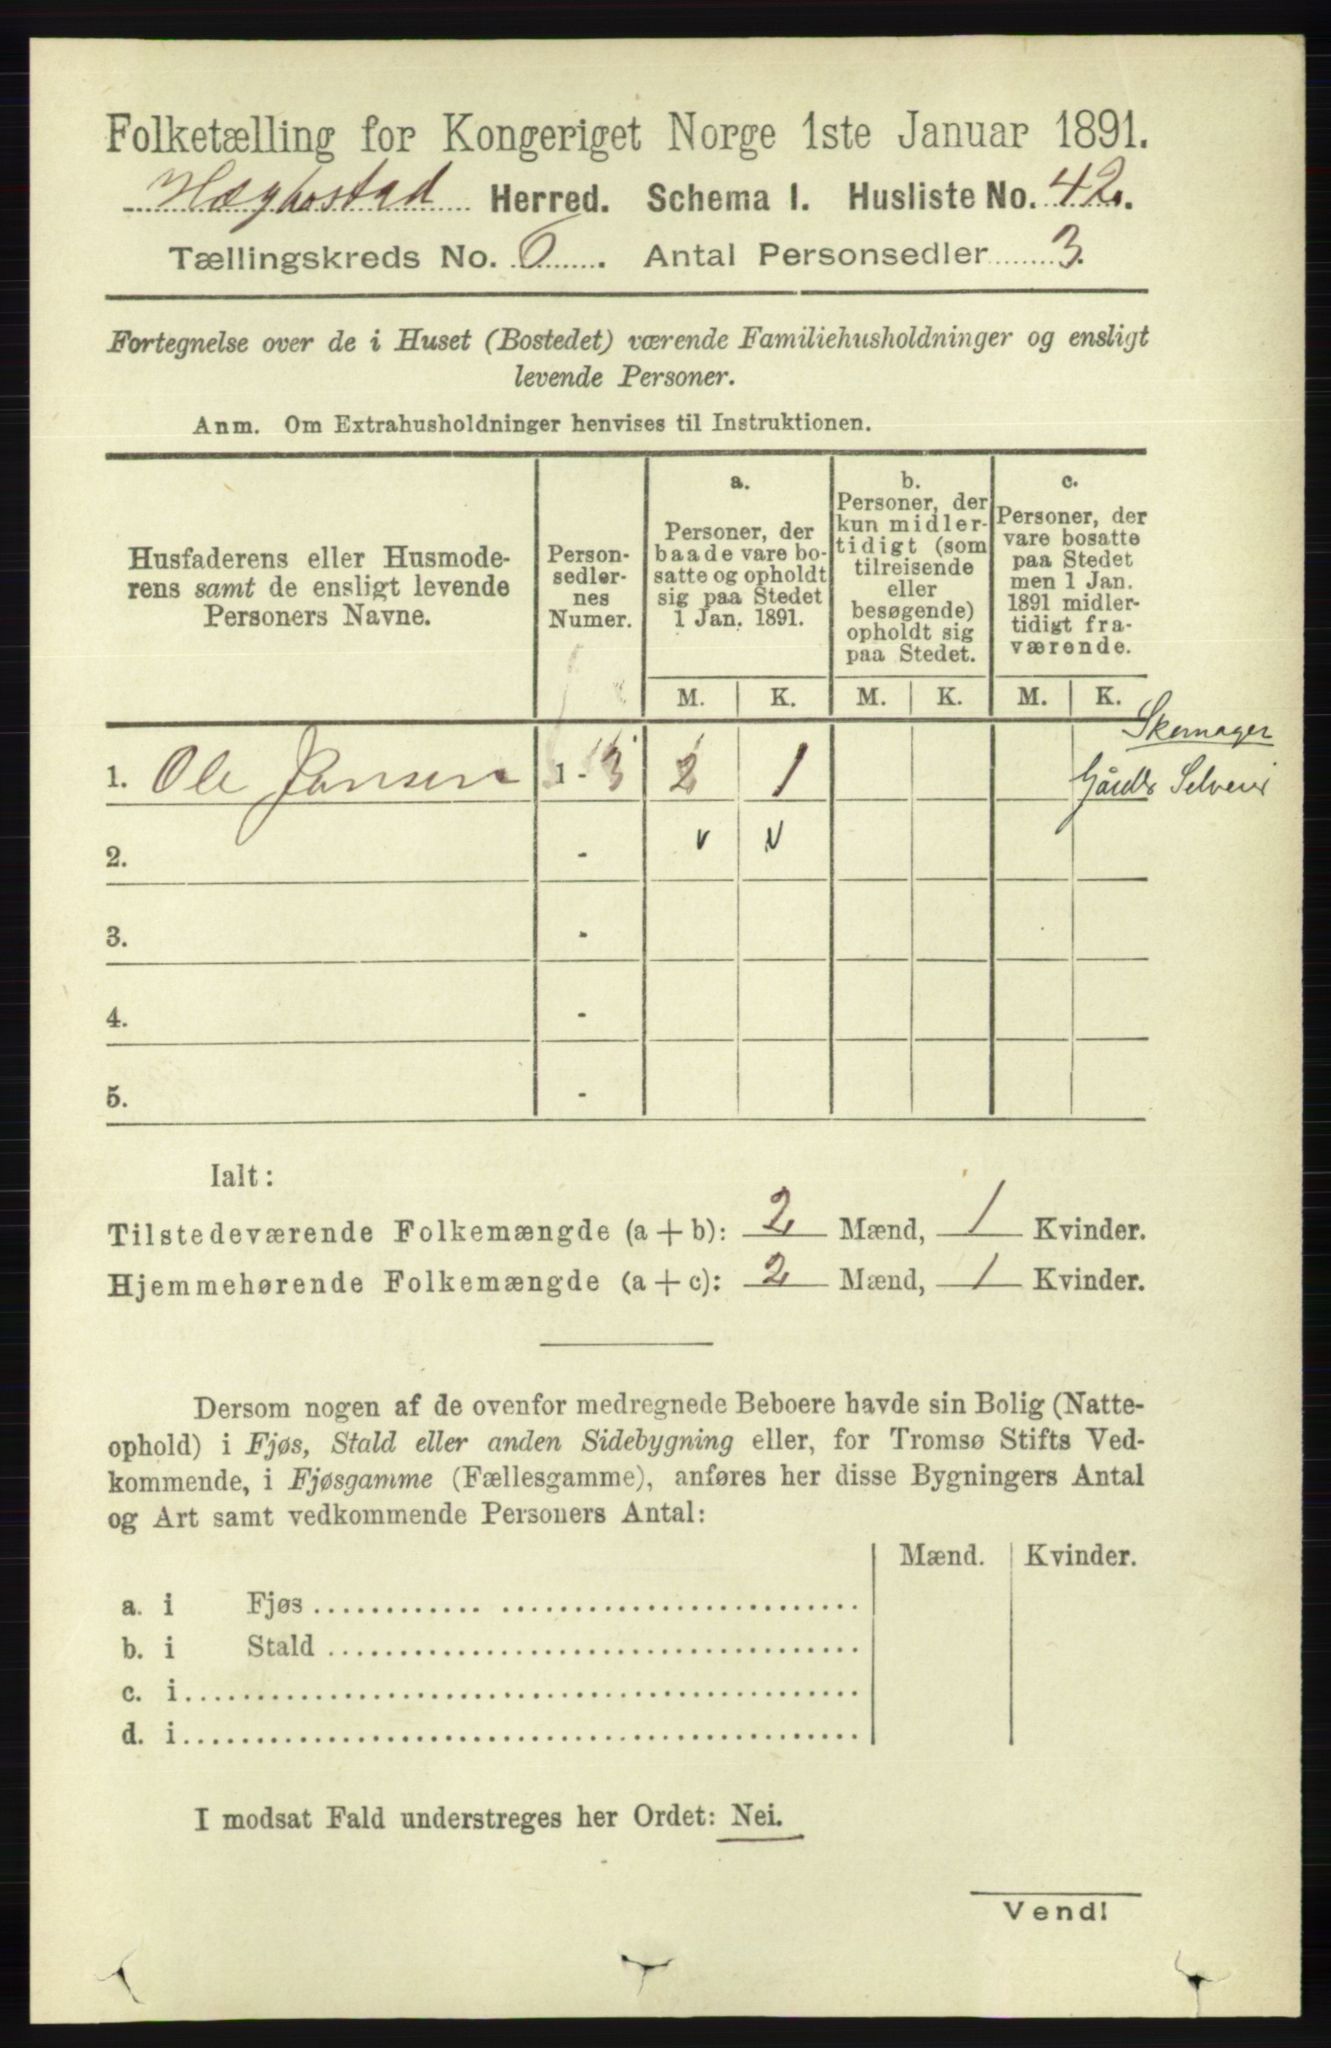 Folketælling for Kongeriget Norge 1ste Januar 1891.
Hægbostad Herred. Schema I. Husliste No. 42.
Tællingskreds No. 6. Antal Personsedler 3.
Fortegnelse over de i Huset (Bostedet) værende Familiehusholdninger og ensligt
levende Personer.
Anm. Om Extrahusholdninger henvises til Instruktionen.
Husfaderens eller Husmode-
rens samt de ensligt levende
Personers Navne.
Person-
sedler-
nes
Numer.
a.
Personer, der
baade vare bo-
satte og opholdt
sig paa Stedet
1 Jan. 1891.
b.
Personer, der
kun midler-
tidigt (som
tilreisende
eller
besøgende)
opholdt sig
paa Stedet.
c.
Personer, der
vare bosatte
paa Stedet
men 1 Jan.
1891 midler-
tidigt fra-
værende.
M. K. M. K. M. K.
Skomager
1. Ole Jansen 1 - 3 2 1 Gårdb Selveier
2. - v v
3. -
4. -
5. -
Ialt:
Tilstedeværende Folkemængde (a + b): 2 Mænd, 1 Kvinder.
Hjemmehørende Folkemængde (a + c): 2 Mænd, 1 Kvinder.
Dersom nogen af de ovenfor medregnede Beboere havde sin Bolig (Natte-
ophold) i Fjøs, Stald eller anden Sidebygning eller, for Tromsø Stifts Ved-
kommende, i Fjøsgamme (Fællesgamme), anføres her disse Bygningers Antal
og Art samt vedkommende Personers Antal:
Mænd. Kvinder.
a. i Fjøs
b. i Stald
c. i
d. i
I modsat Fald understreges her Ordet: Nei.
Vend!